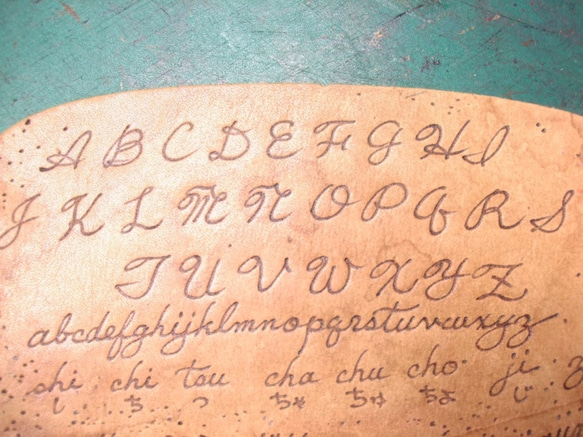 A B C D E F G H I
J K L M N O P Q R S
T U V W X Y Z
abcdefghijklmnopqrstuvwxyz
shi chi tsu cha chu cho ji
し ち つ ちゃ ちゅ ちょ じ